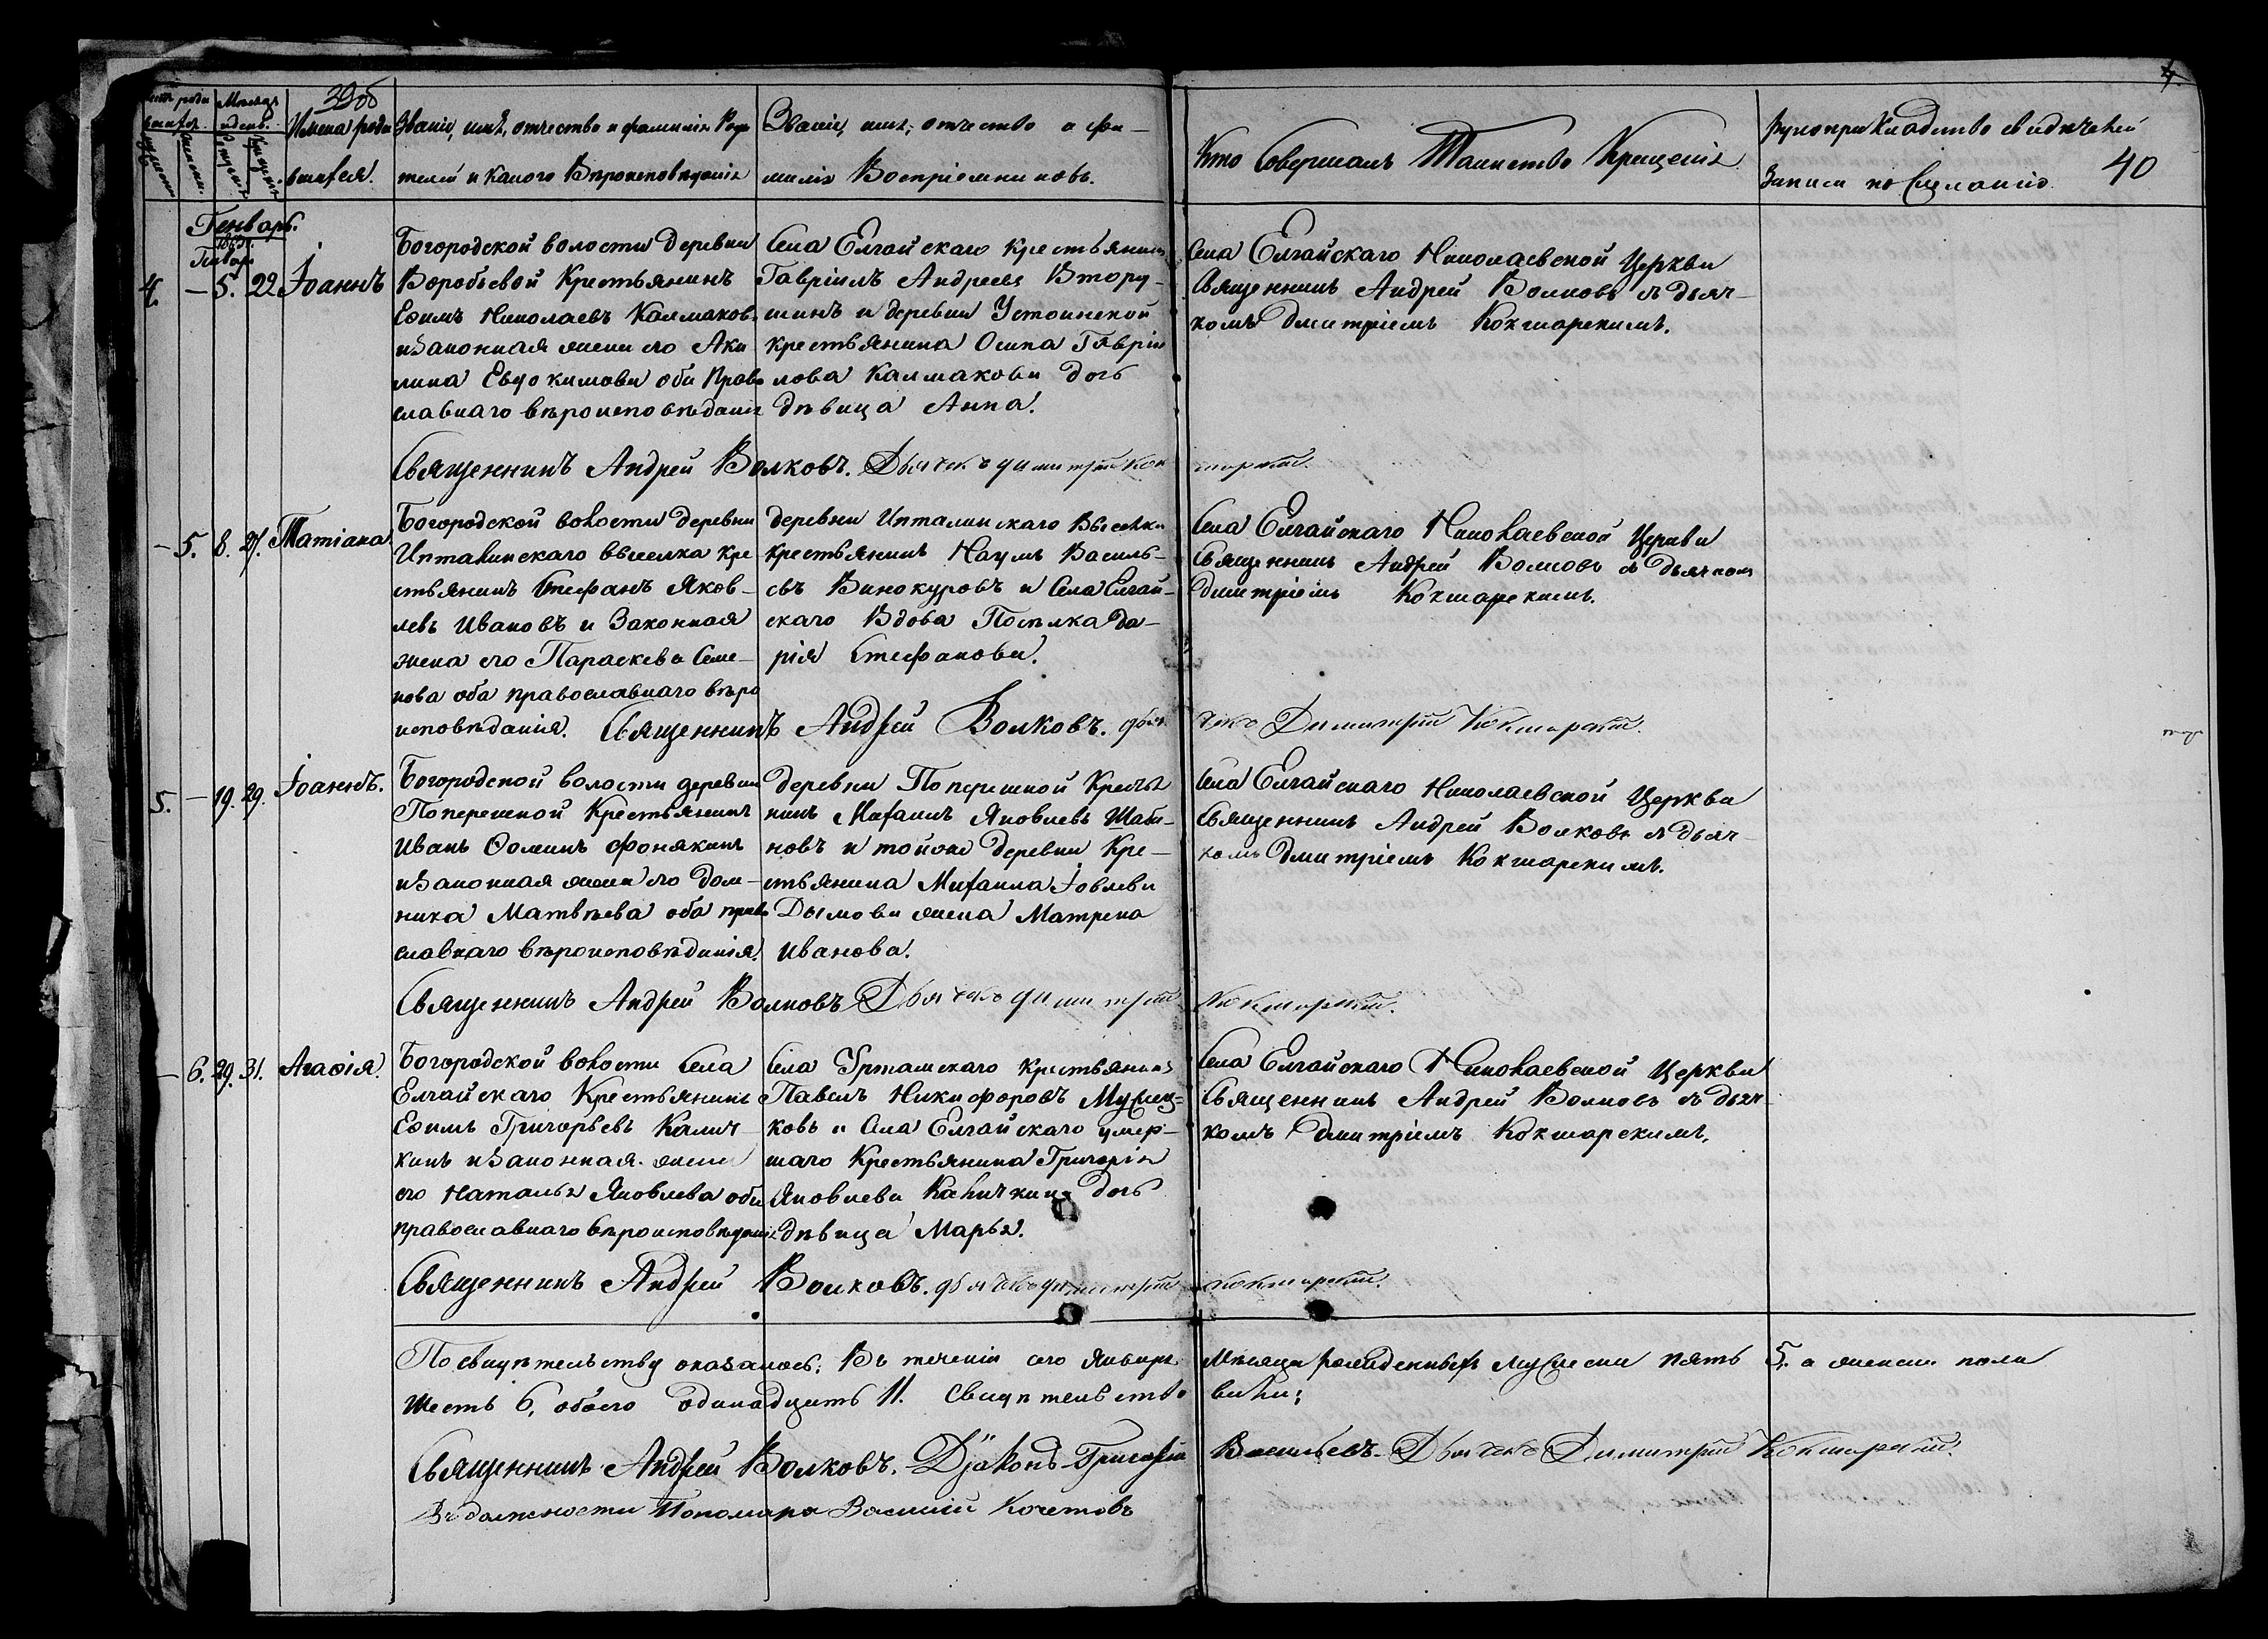 39об
40
Имена роди
вшихся.
Званіе, имя, отчество и фамилія Роди
телей и какого Вѣроисповѣданія
Званіе, имя, отчество и фа-
милія Воспріемниковъ.
Кто Совершалъ Таинство Крещенія
Рукоприкладство свидѣтелей
Записи по Желанію
Генварь.
4. — 5. 22. Іоаннъ
Богородской волости деревни
Воробьевой Крестьянинъ
Ефимъ Николаевъ Калмаковъ
и Законная жена его Аку
лина Евдокимова оба Право
славнаго вѣроисповѣданія
Села Елгайскаго крестьянинъ
Гавріилъ Андреевъ Втору-
шинъ и деревни Устоинской
крестьянина Осипа Гаврiи
лова Калмакова дочь
дѣвица Анна.
Села Елгайскаго Николаевской Церкви
Священникъ Андрей Волковъ съ дьяч-
комъ Дмитріемъ Кокшарскимъ.
Священникъ Андрей Волковъ. Дьячекъ Димитрій Кокшарскій.
— 5. 8. 27. Татіана
Богородской волости деревни
Ипталинскаго выселка кре
стьянинъ Стефанъ Яков-
левъ Ивановъ и Законная
жена его Параскева Семе-
нова оба православнаго вѣро
исповѣданія.
деревни Ипталинскаго Выселка
крестьянинъ Наумъ Василь-
евъ Винокуровъ и Села Елгай-
скаго Вдова Поселка Да-
рія Стефанова.
Села Елгайскаго Николаевской Церкви
Священникъ Андрей Волковъ съ дьячкомъ
Димитріемъ Кокшарскимъ.
Священникъ Андрей Волковъ. дьячекъ Димитрій Кокшарскій.
5. — 19. 29. Іоаннъ.
Богородской волости деревни
Поперешной Крестьянинъ
Иванъ Ѳоминъ Фонякинъ
и Законная жена его Дом-
ника Матвѣева оба право
славнаго вѣроисповѣданія.
деревни Поперешной Крестья
нинъ Михаилъ Яковлевъ Шаби-
новъ и тойже деревни Кре-
стьянина Михаила Іовлева
Дымова жена Матрена
Иванова.
Села Елгайскаго Николаевской Церкви
Священникъ Андрей Волковъ съ дьяч-
комъ Дмитріемъ Кокшарскимъ.
Священникъ Андрей Волковъ Дьячекъ Димитрій Кокшарскій.
— 6. 29. 31. Агаѳія.
Богородской волости Села
Елгайскаго Крестьянинъ
Ефимъ Григорьевъ Калич-
кинъ и Законная жена
его Наталья Яковлева оба
православнаго вѣроисповѣданія
Села Уртамскаго крестьянинъ
Павелъ Никифоровъ
ковъ и Села Елгайскаго умер-
шаго Крестьянина Григорія
Яковлева Каличкина дочь
дѣвица Марья.
Села Елгайскаго Николаевской Церкви
Священникъ Андрей Волковъ съ дьяч-
комъ Дмитріемъ Кокшарскимъ.
Священникъ Андрей Волковъ. дьячекъ Димитрій Кокшарскій.
По свидѣтельству оказалось: Въ теченіи сего Января Мѣсяца рожденныхъ мужеска пять 5. а женска пола
шесть 6, обоего одинадцать 11. Свидѣтельство вали:
Священникъ Андрей Волковъ. Дjаконъ Григорій Васильевъ. Дьячекъ Димитрій Кокшарскій.
Въ должности Пономаря Василій Кочетовъ